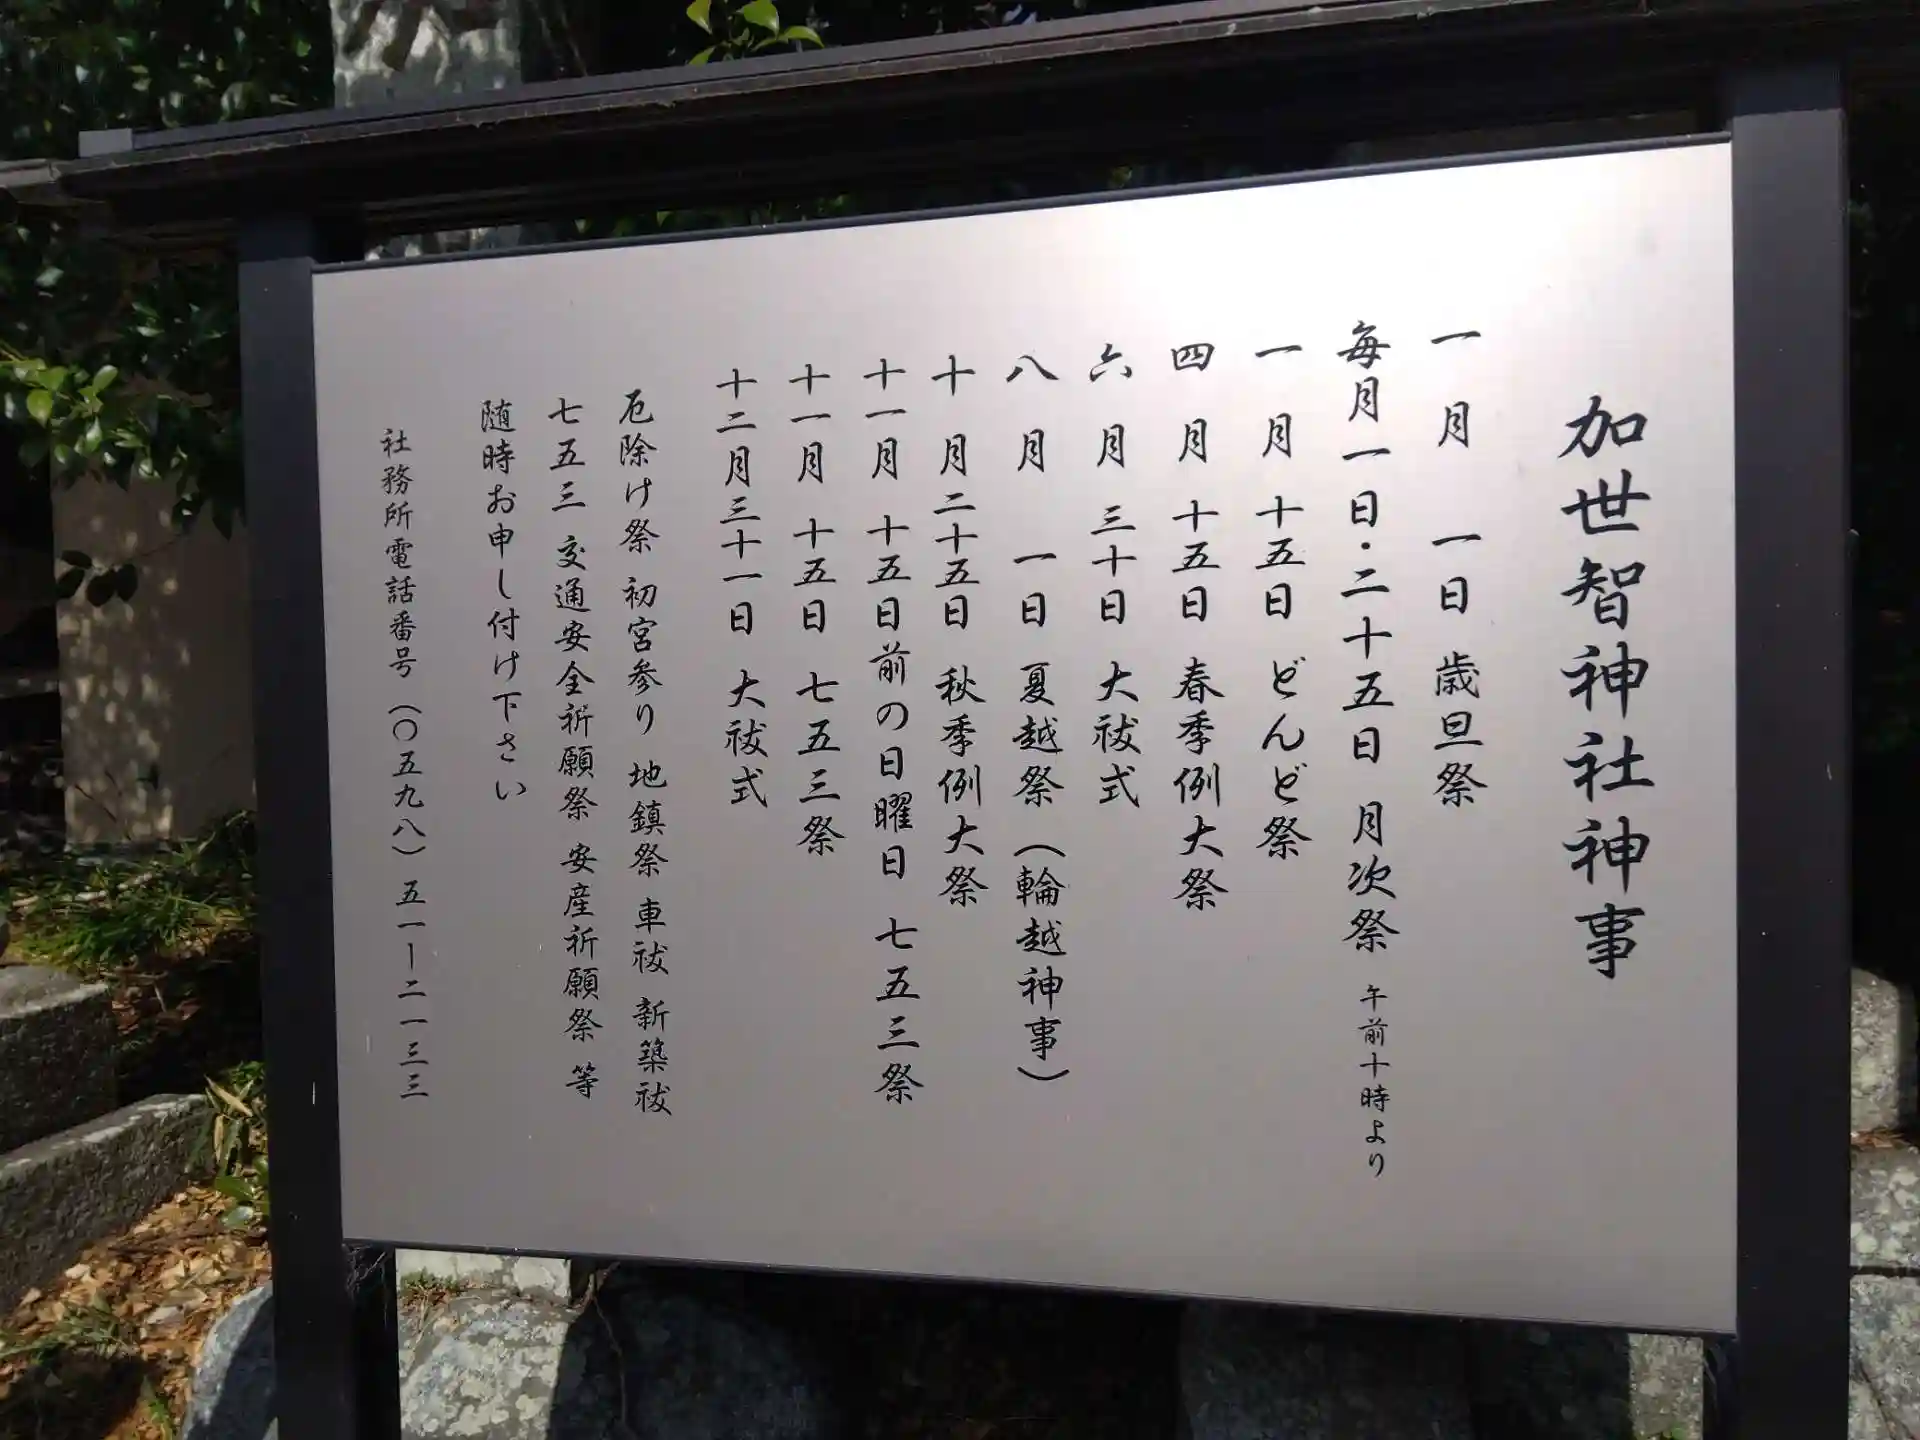 加世智神社神事
一月 一日 歳旦祭
毎月一日・二十五日 月次祭 午前十時より
一月 十五日 どんど祭
四月 十五日 春季例大祭
六月 三十日 大祓式
八月 一日 夏越祭（輪越神事）
十月二十五日 秋季例大祭
十一月 十五日前の日曜日 七五三祭
十一月 十五日 七五三祭
十二月三十一日 大祓式
厄除け祭 初宮参り 地鎮祭 車祓 新築祓
七五三 交通安全祈願祭 安産祈願祭 等
随時お申し付け下さい
社務所電話番号（〇五九八）五一ー二一三三